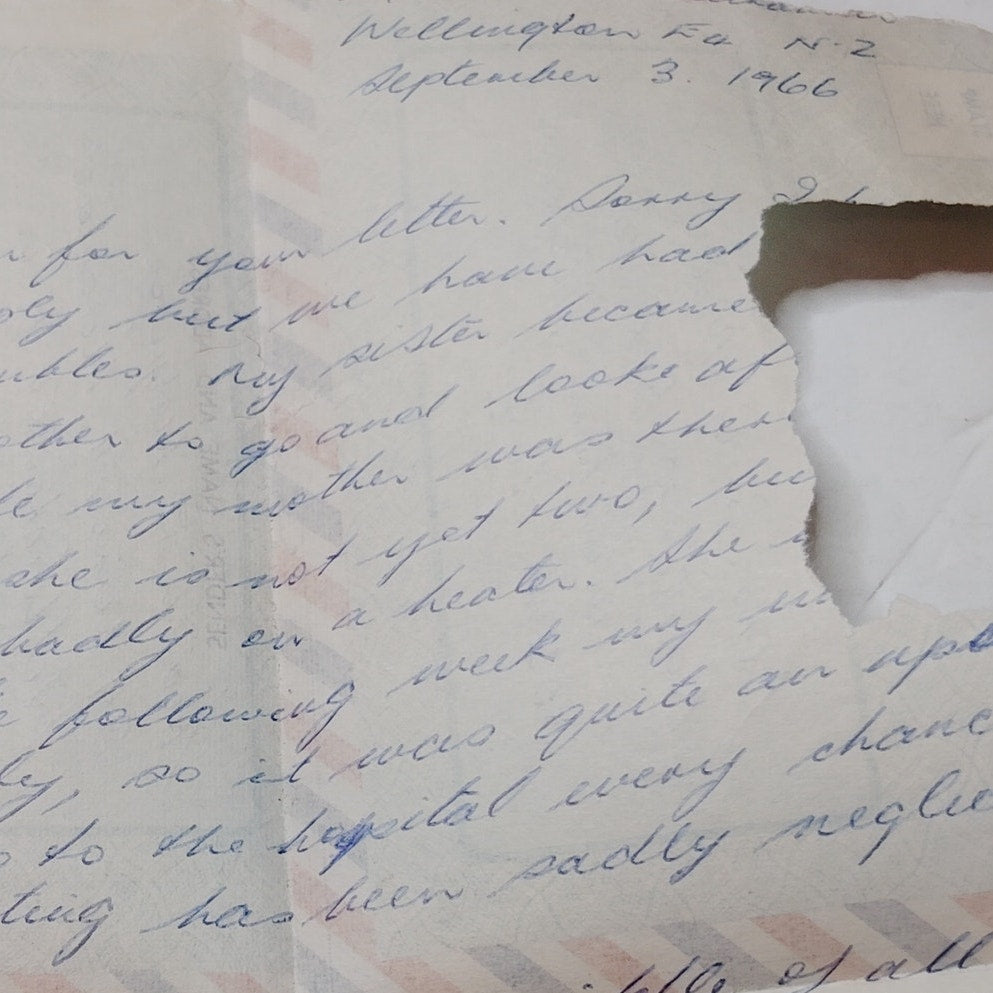 Wellington E4 N.Z
September 3. 1966
for your letter. Sorry I
but we have had
ubles. My sister became
other to go and looke af
my mother was ther
she is not yet two, bu
badly on a heater. She
following week my
ly, so it was quite an ups
to the hospital every chanc
ting has been sadly neglec
of all